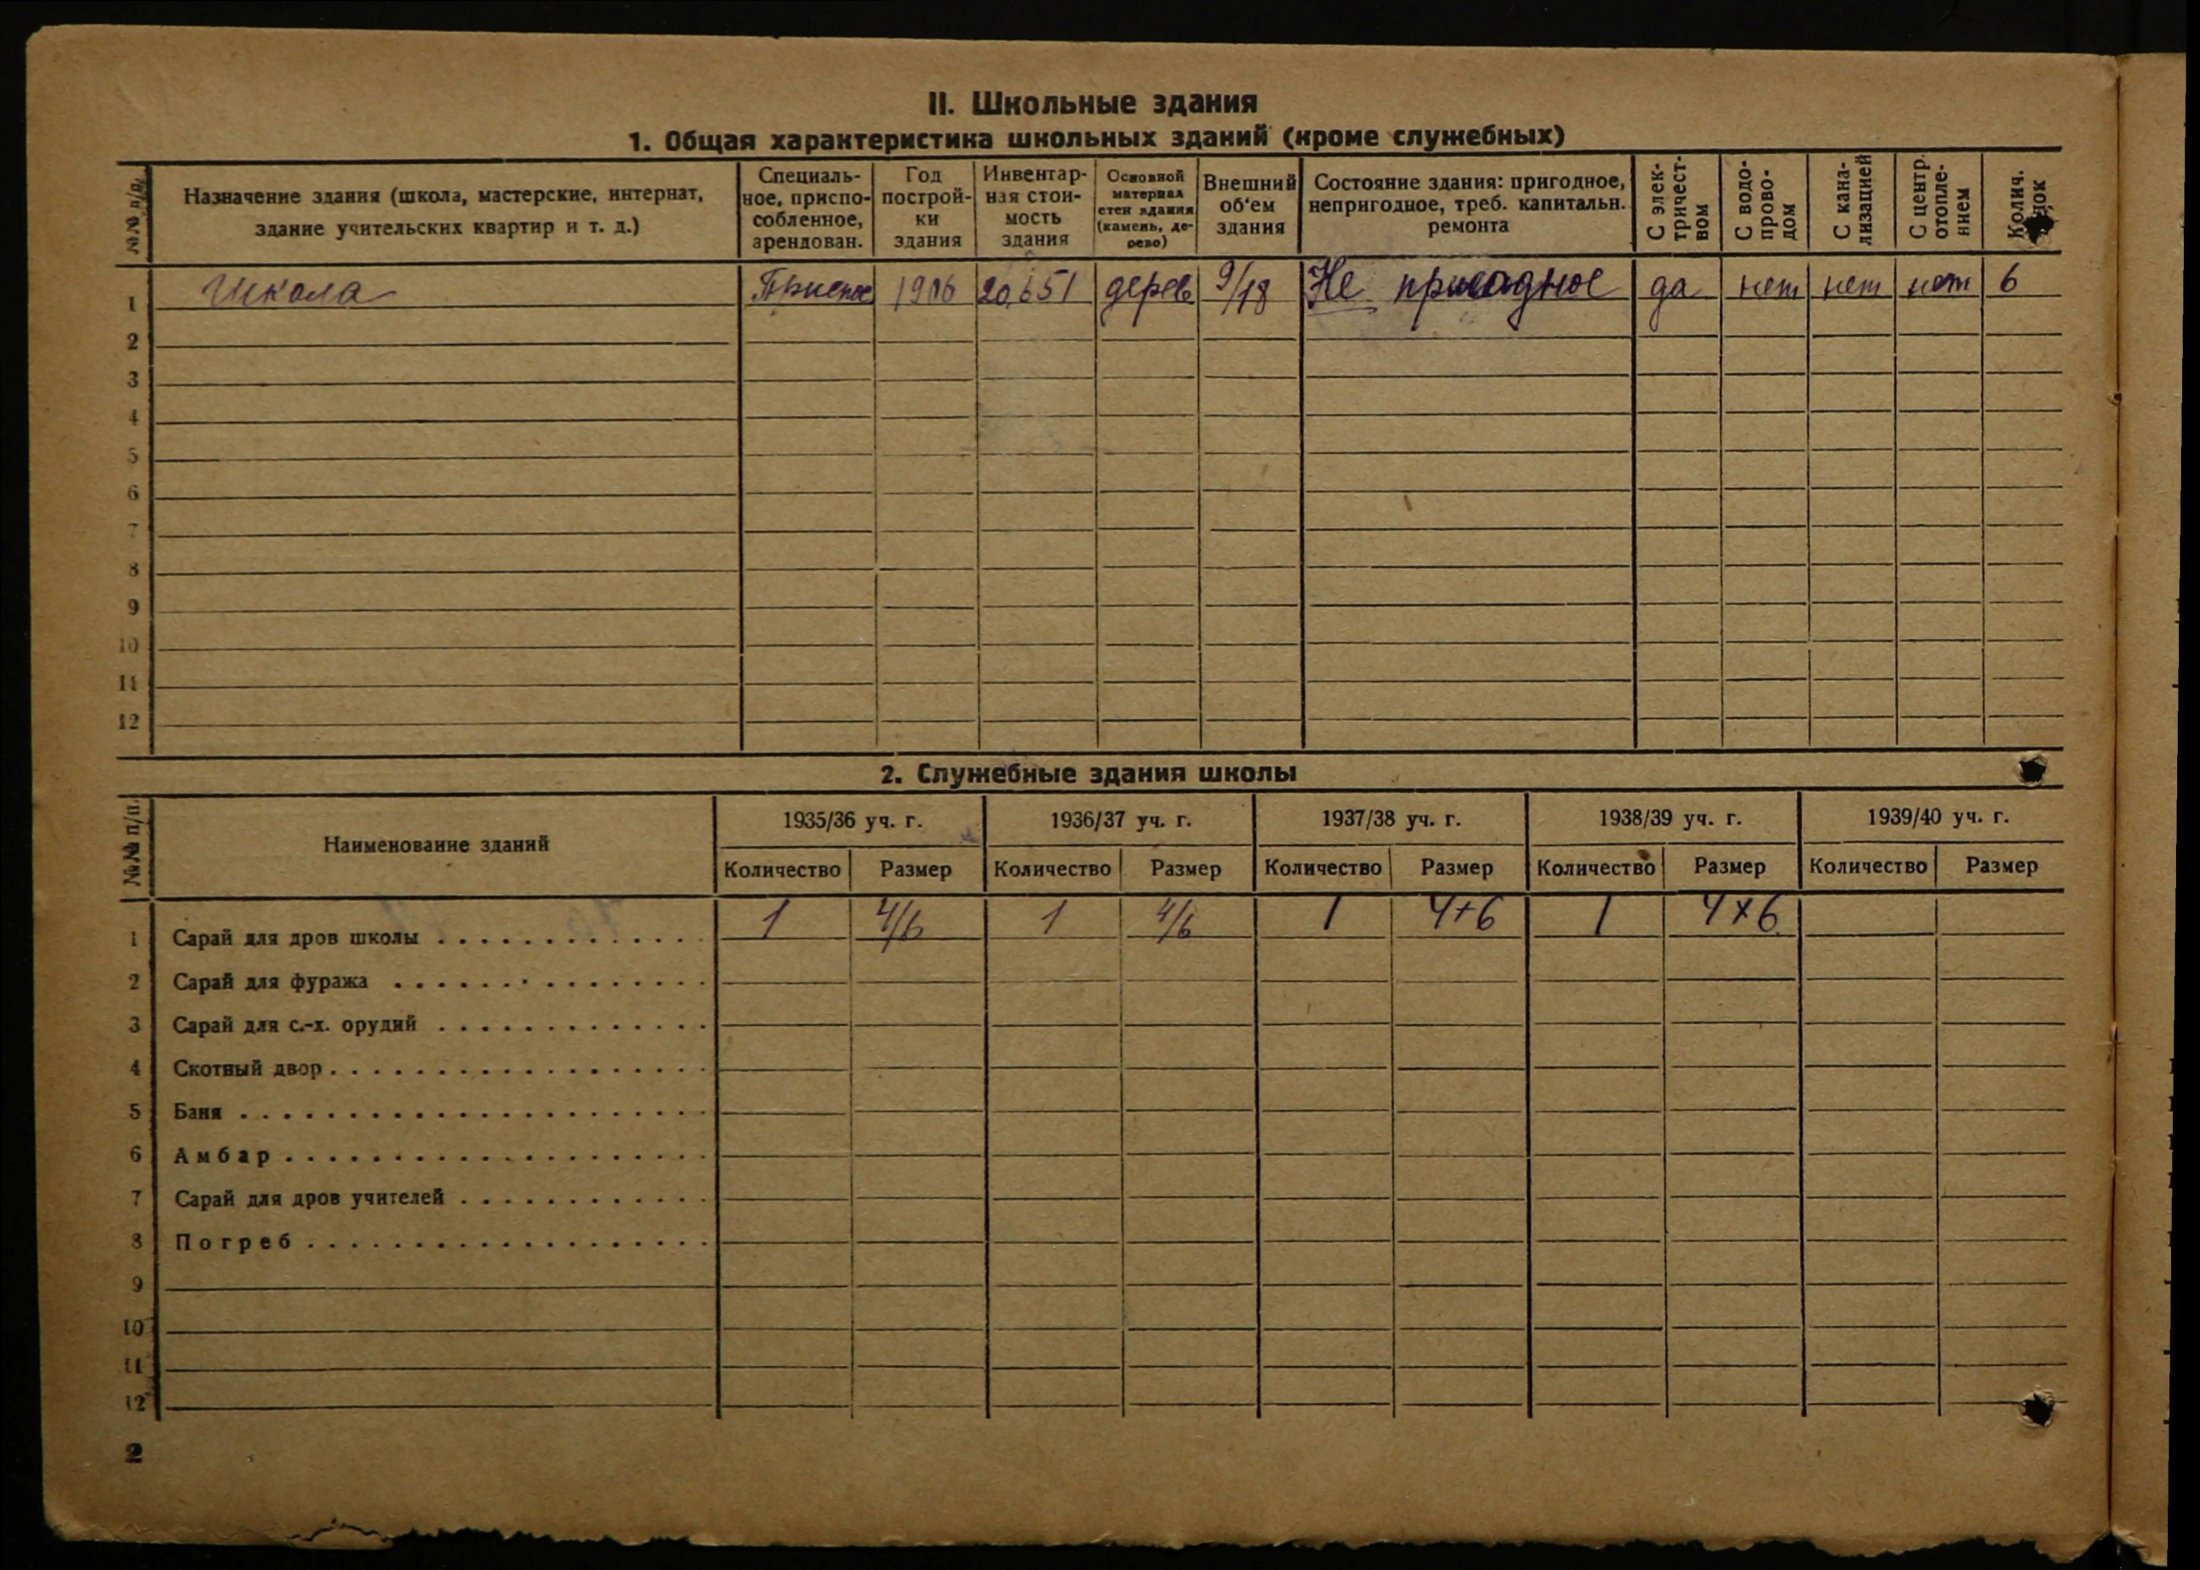 II. Школьные здания
1. Общая характеристика школьных зданий (кроме служебных)
№№ п/п. Назначение здания (школа, мастерские, интернат, здание учительских квартир и т. д.) Специальное, приспособленное, арендован. Год построй-ки здания Инвентар-ная стои-мость здания Основной материал стен здания (камень, де-рево) Внешний об'ем здания Состояние здания: пригодное, непригодное, треб. капитальн. ремонта С элек-тричест-вом С водо-прово-дом С кана-лизацией С центр. отопле-нием Колич.
1 Школа 1906 20,651 дерев 9/18 Не пригодное да нет нет нет 6
2
3
4
5
6
7
8
9
10
11
12
2. Служебные здания школы
№№ п/п. Наименование зданий 1935/36 уч. г. 1936/37 уч. г. 1937/38 уч. г. 1938/39 уч. г. 1939/40 уч. г.
Количество Размер Количество Размер Количество Размер Количество Размер Количество Размер
1 Сарай для дров школы 1 4/6 1 4/6 1 4+6 1 4х6
2 Сарай для фуража
3 Сарай для с.-х. орудий
4 Скотный двор
5 Баня
6 Амбар
7 Сарай для дров учителей
8 Погреб
9
10
11
12
2